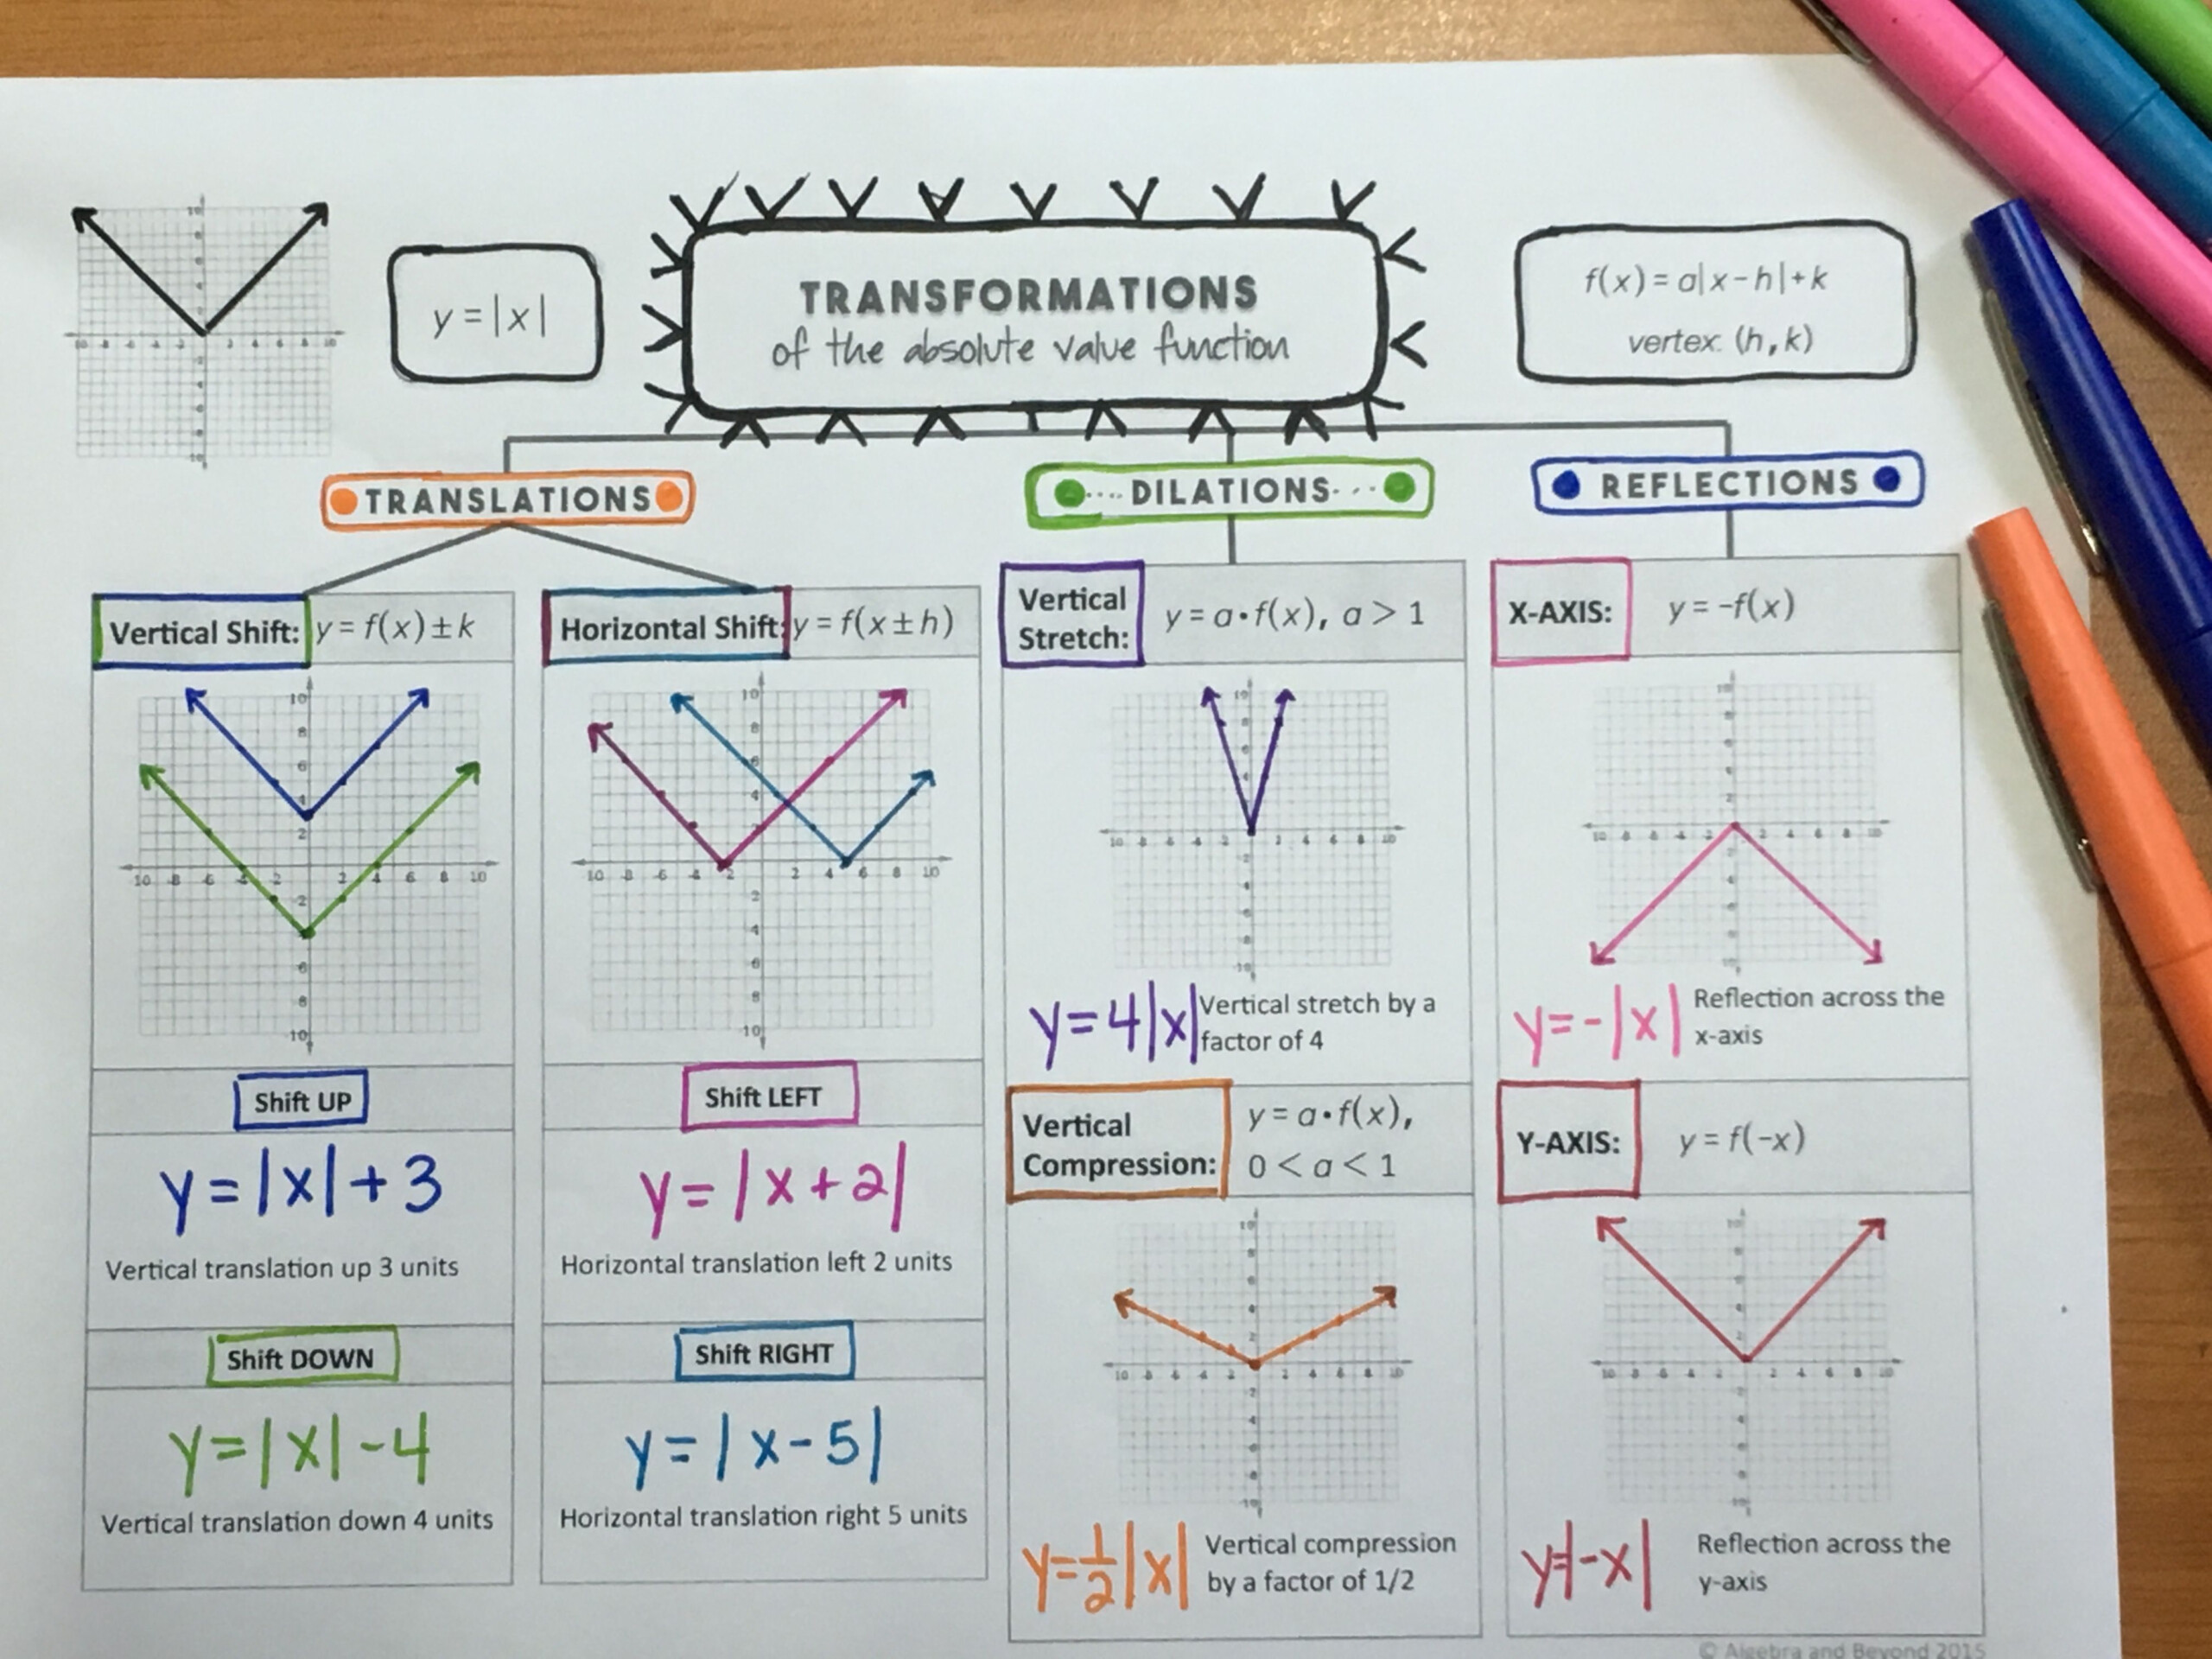 y = |x|
TRANSFORMATIONS
of the absolute value function
f(x) = a|x-h|+k
vertex: (h, k)
TRANSLATIONS
DILATIONS
REFLECTIONS
Vertical Shift: y = f(x) ± k
Shift UP
y = |x| + 3
Vertical translation up 3 units
Shift DOWN
y = |x| - 4
Vertical translation down 4 units
Horizontal Shift: y = f(x ± h)
Shift LEFT
y = |x + 2|
Horizontal translation left 2 units
Shift RIGHT
y = |x - 5|
Horizontal translation right 5 units
Vertical
Stretch:
y = a•f(x), a > 1
y = 4|x|
Vertical stretch by a
factor of 4
Vertical
Compression:
y = a•f(x),
0 < a < 1
y = 1/2|x|
Vertical compression
by a factor of 1/2
X-AXIS: y = -f(x)
y = -|x|
Reflection across the
x-axis
Y-AXIS: y = f(-x)
y = |-x|
Reflection across the
y-axis
© Algebra and Beyond 2015